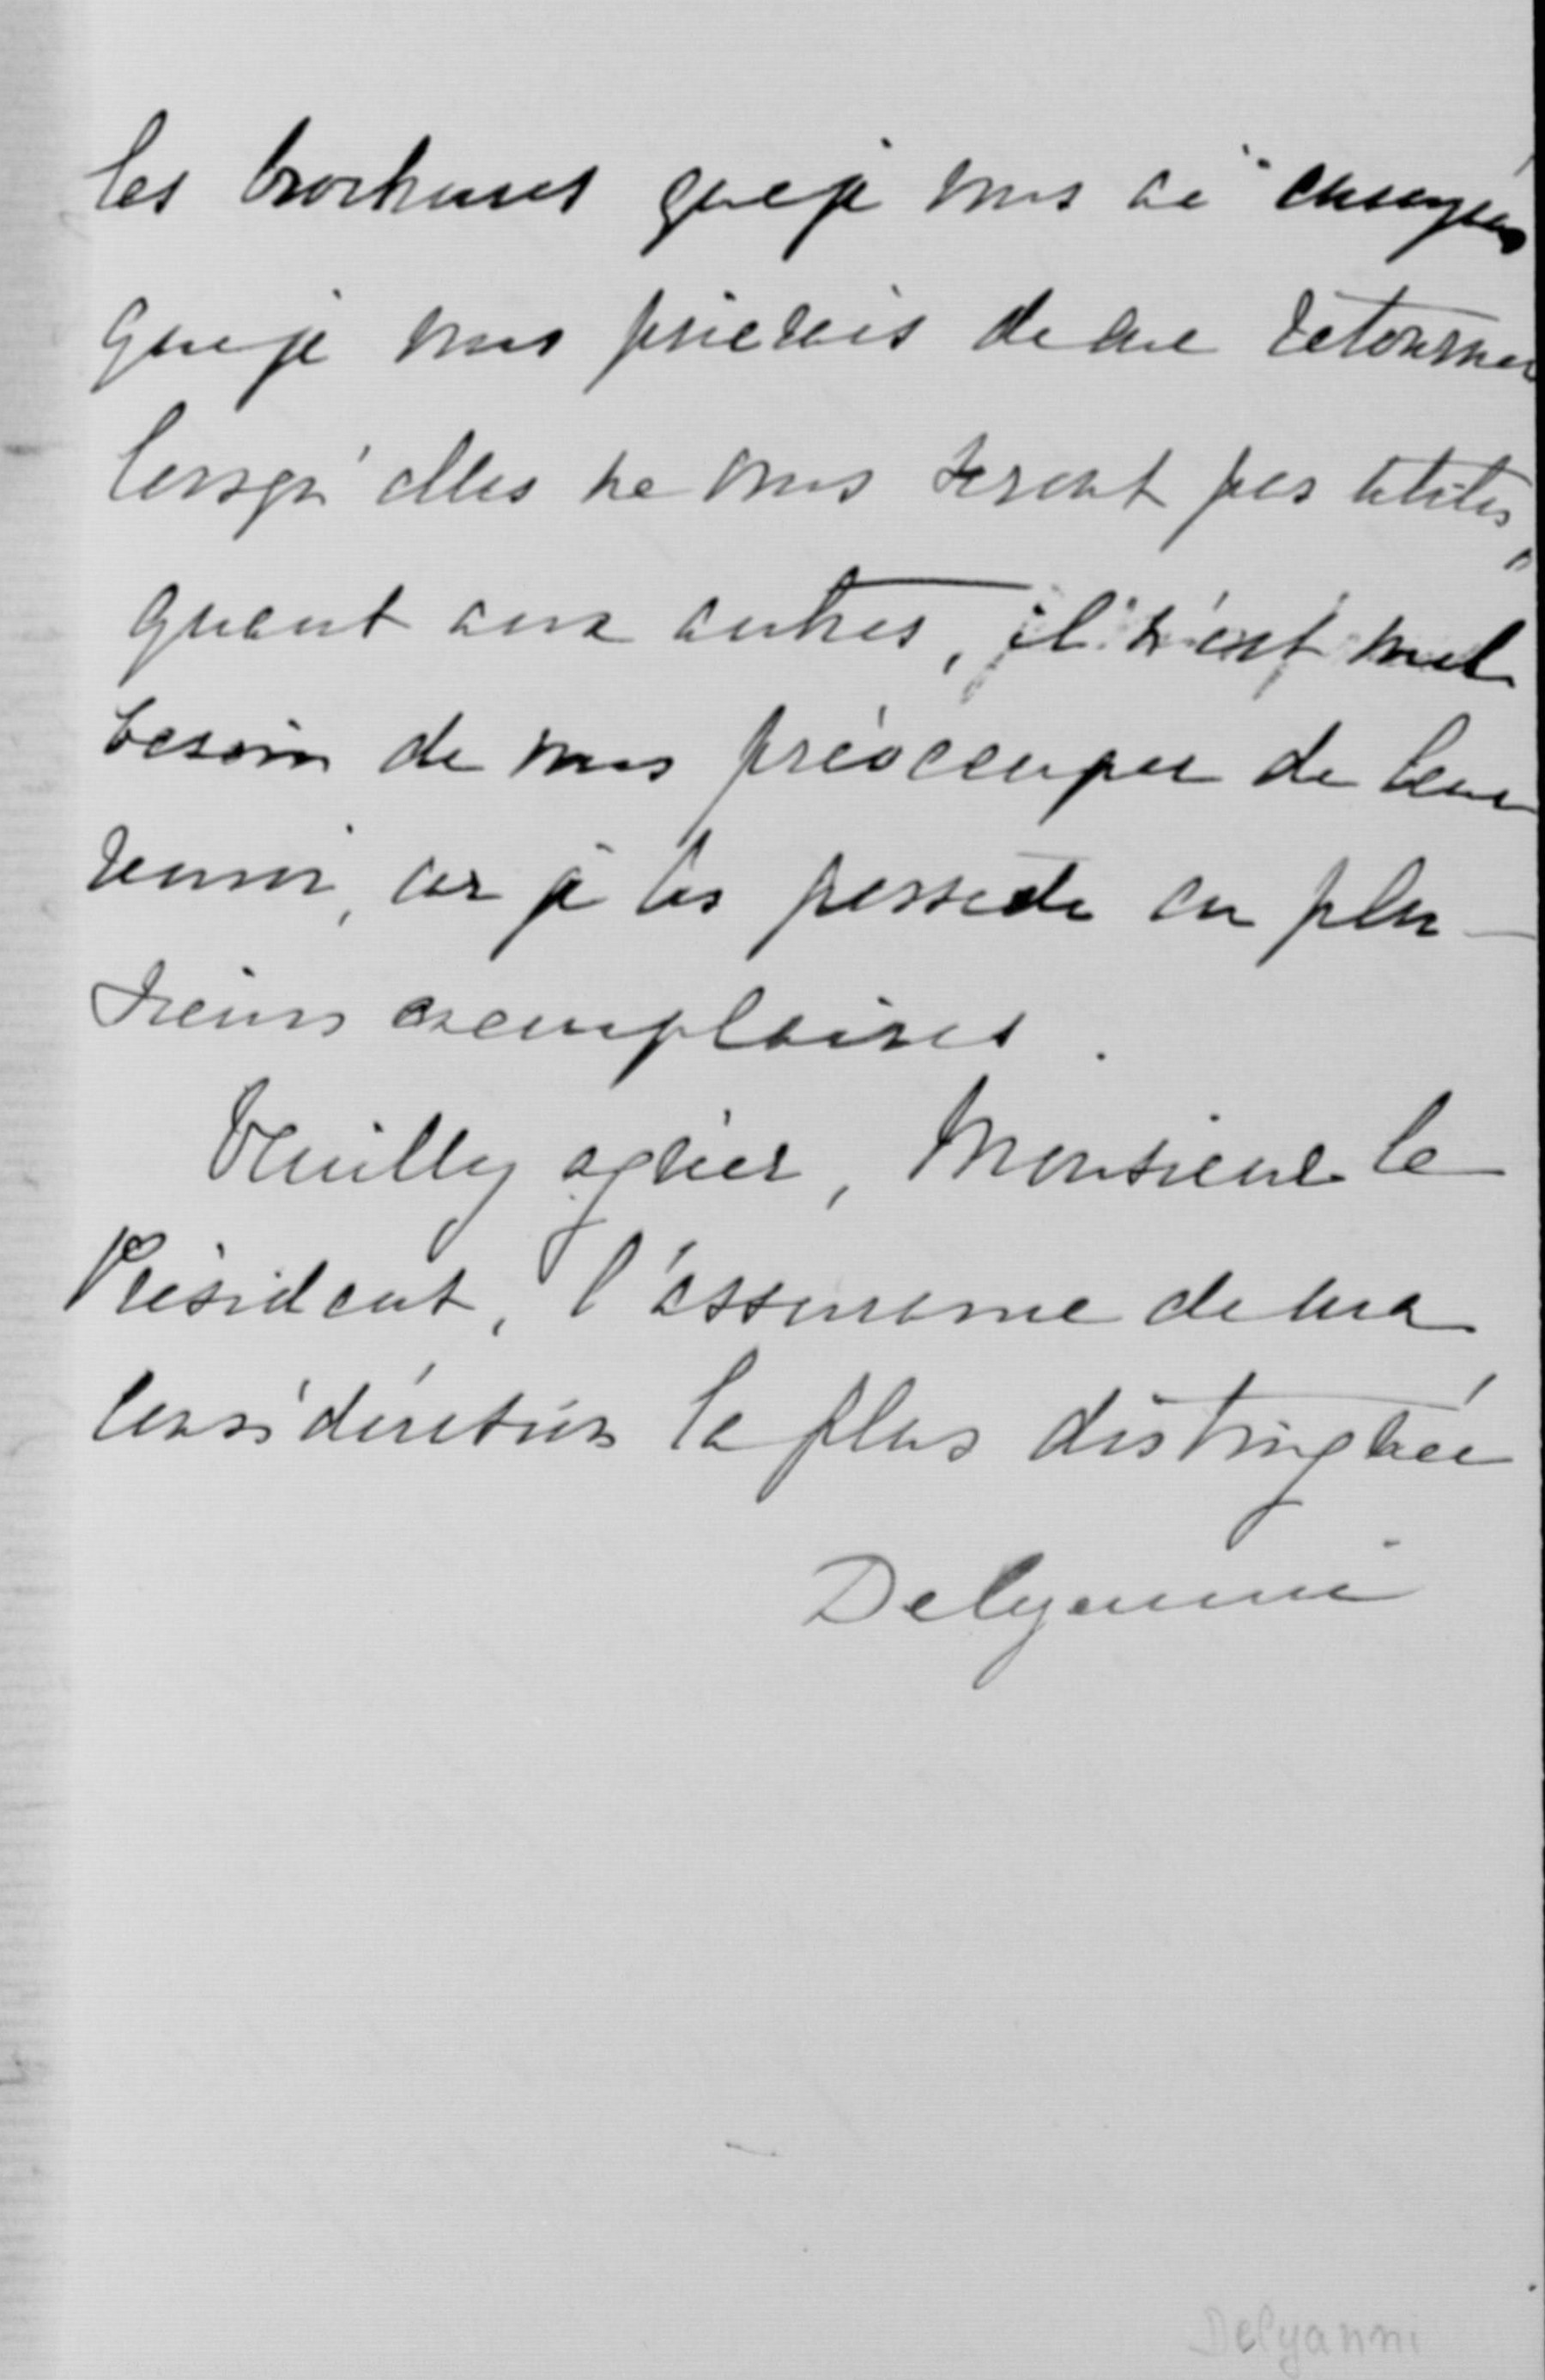 les brochures que je vous ai envoyées
que je vous prierais de me retourner
lorsqu'elles ne vous seront pas utiles,
quant aux autres, il n'est nul
besoin de vous préoccuper de leur
renvoi, car je les possède en plu-
sieurs exemplaires.
Veuillez agréer, Monsieur le
Président, l'assurance de ma
considération la plus distinguée
Delyanni
Delyanni